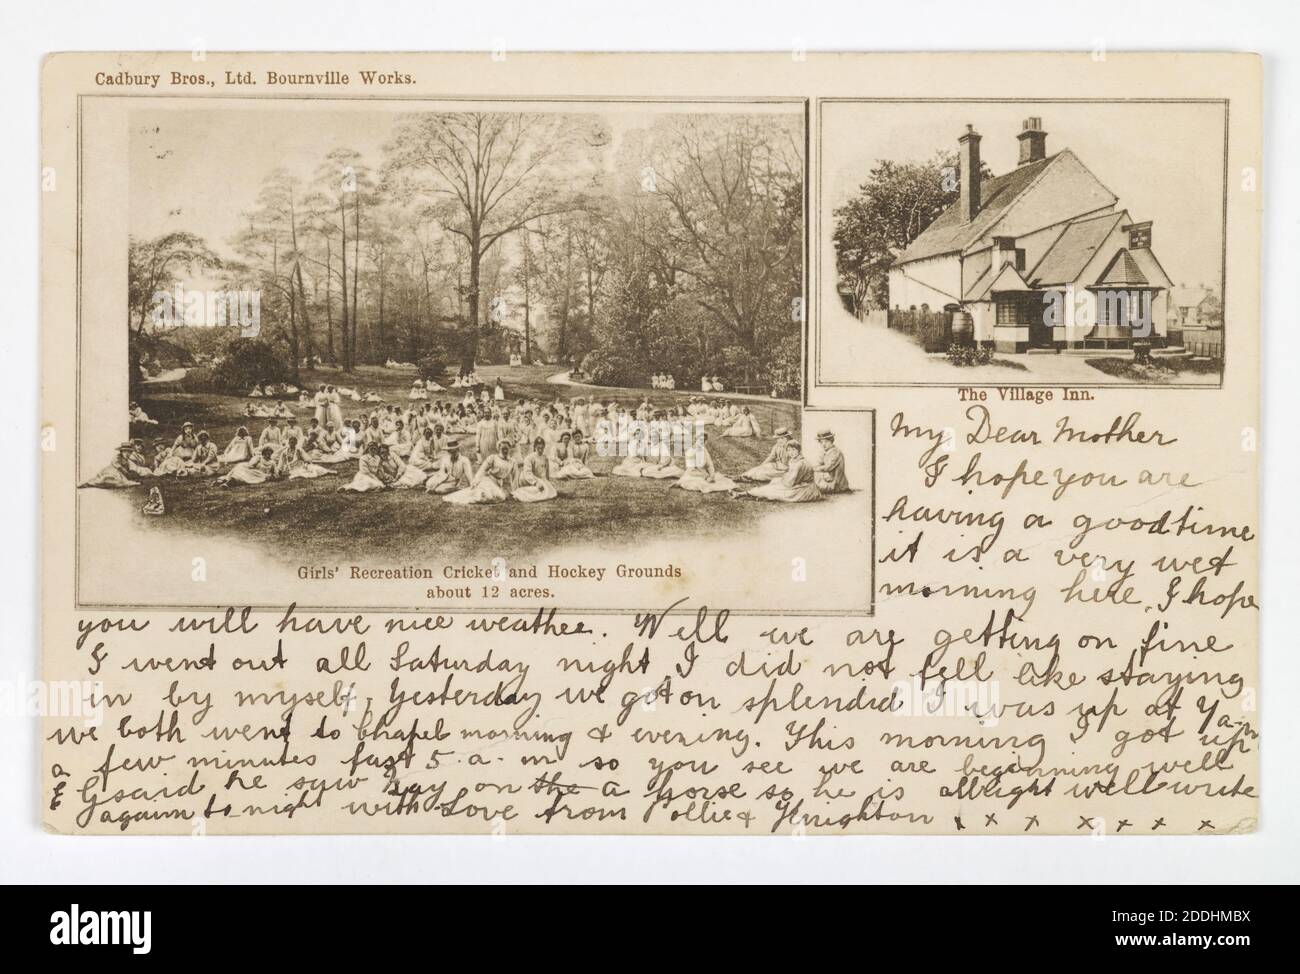 Cadbury Bros., Ltd. Bournville Works.
The Village Inn.
Girls' Recreation Cricket and Hockey Grounds
about 12 acres.
My Dear Mother
I hope you are
having a good time
it is a very wet
morning here, I hope
you will have nice weather. Well we are getting on fine
I went out all Saturday night I did not fell like staying
in by myself, Yesterday we got on splendid I was up at 7 a-m
we both went to Chapel morning & evening. This morning I got up
a few minutes past 5. a. m so you see we are beginning well
& G said he saw Ray on the a horse so he is allright will write
again to night with Love from Pollie & Knighton x x x x x x x
alamy
Image ID: 2DDHMBX
www.alamy.com